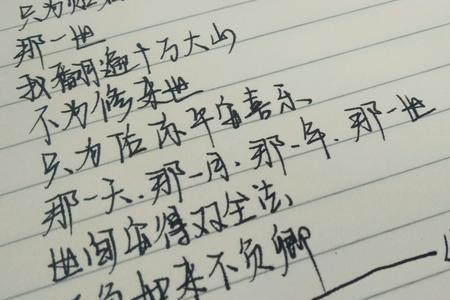 只为
那一世
我翻遍十万大山
不为修来世
只为佑你平安喜乐
那一天.那一月.那一年.那一世
世间安得双全法
不负如来不负卿